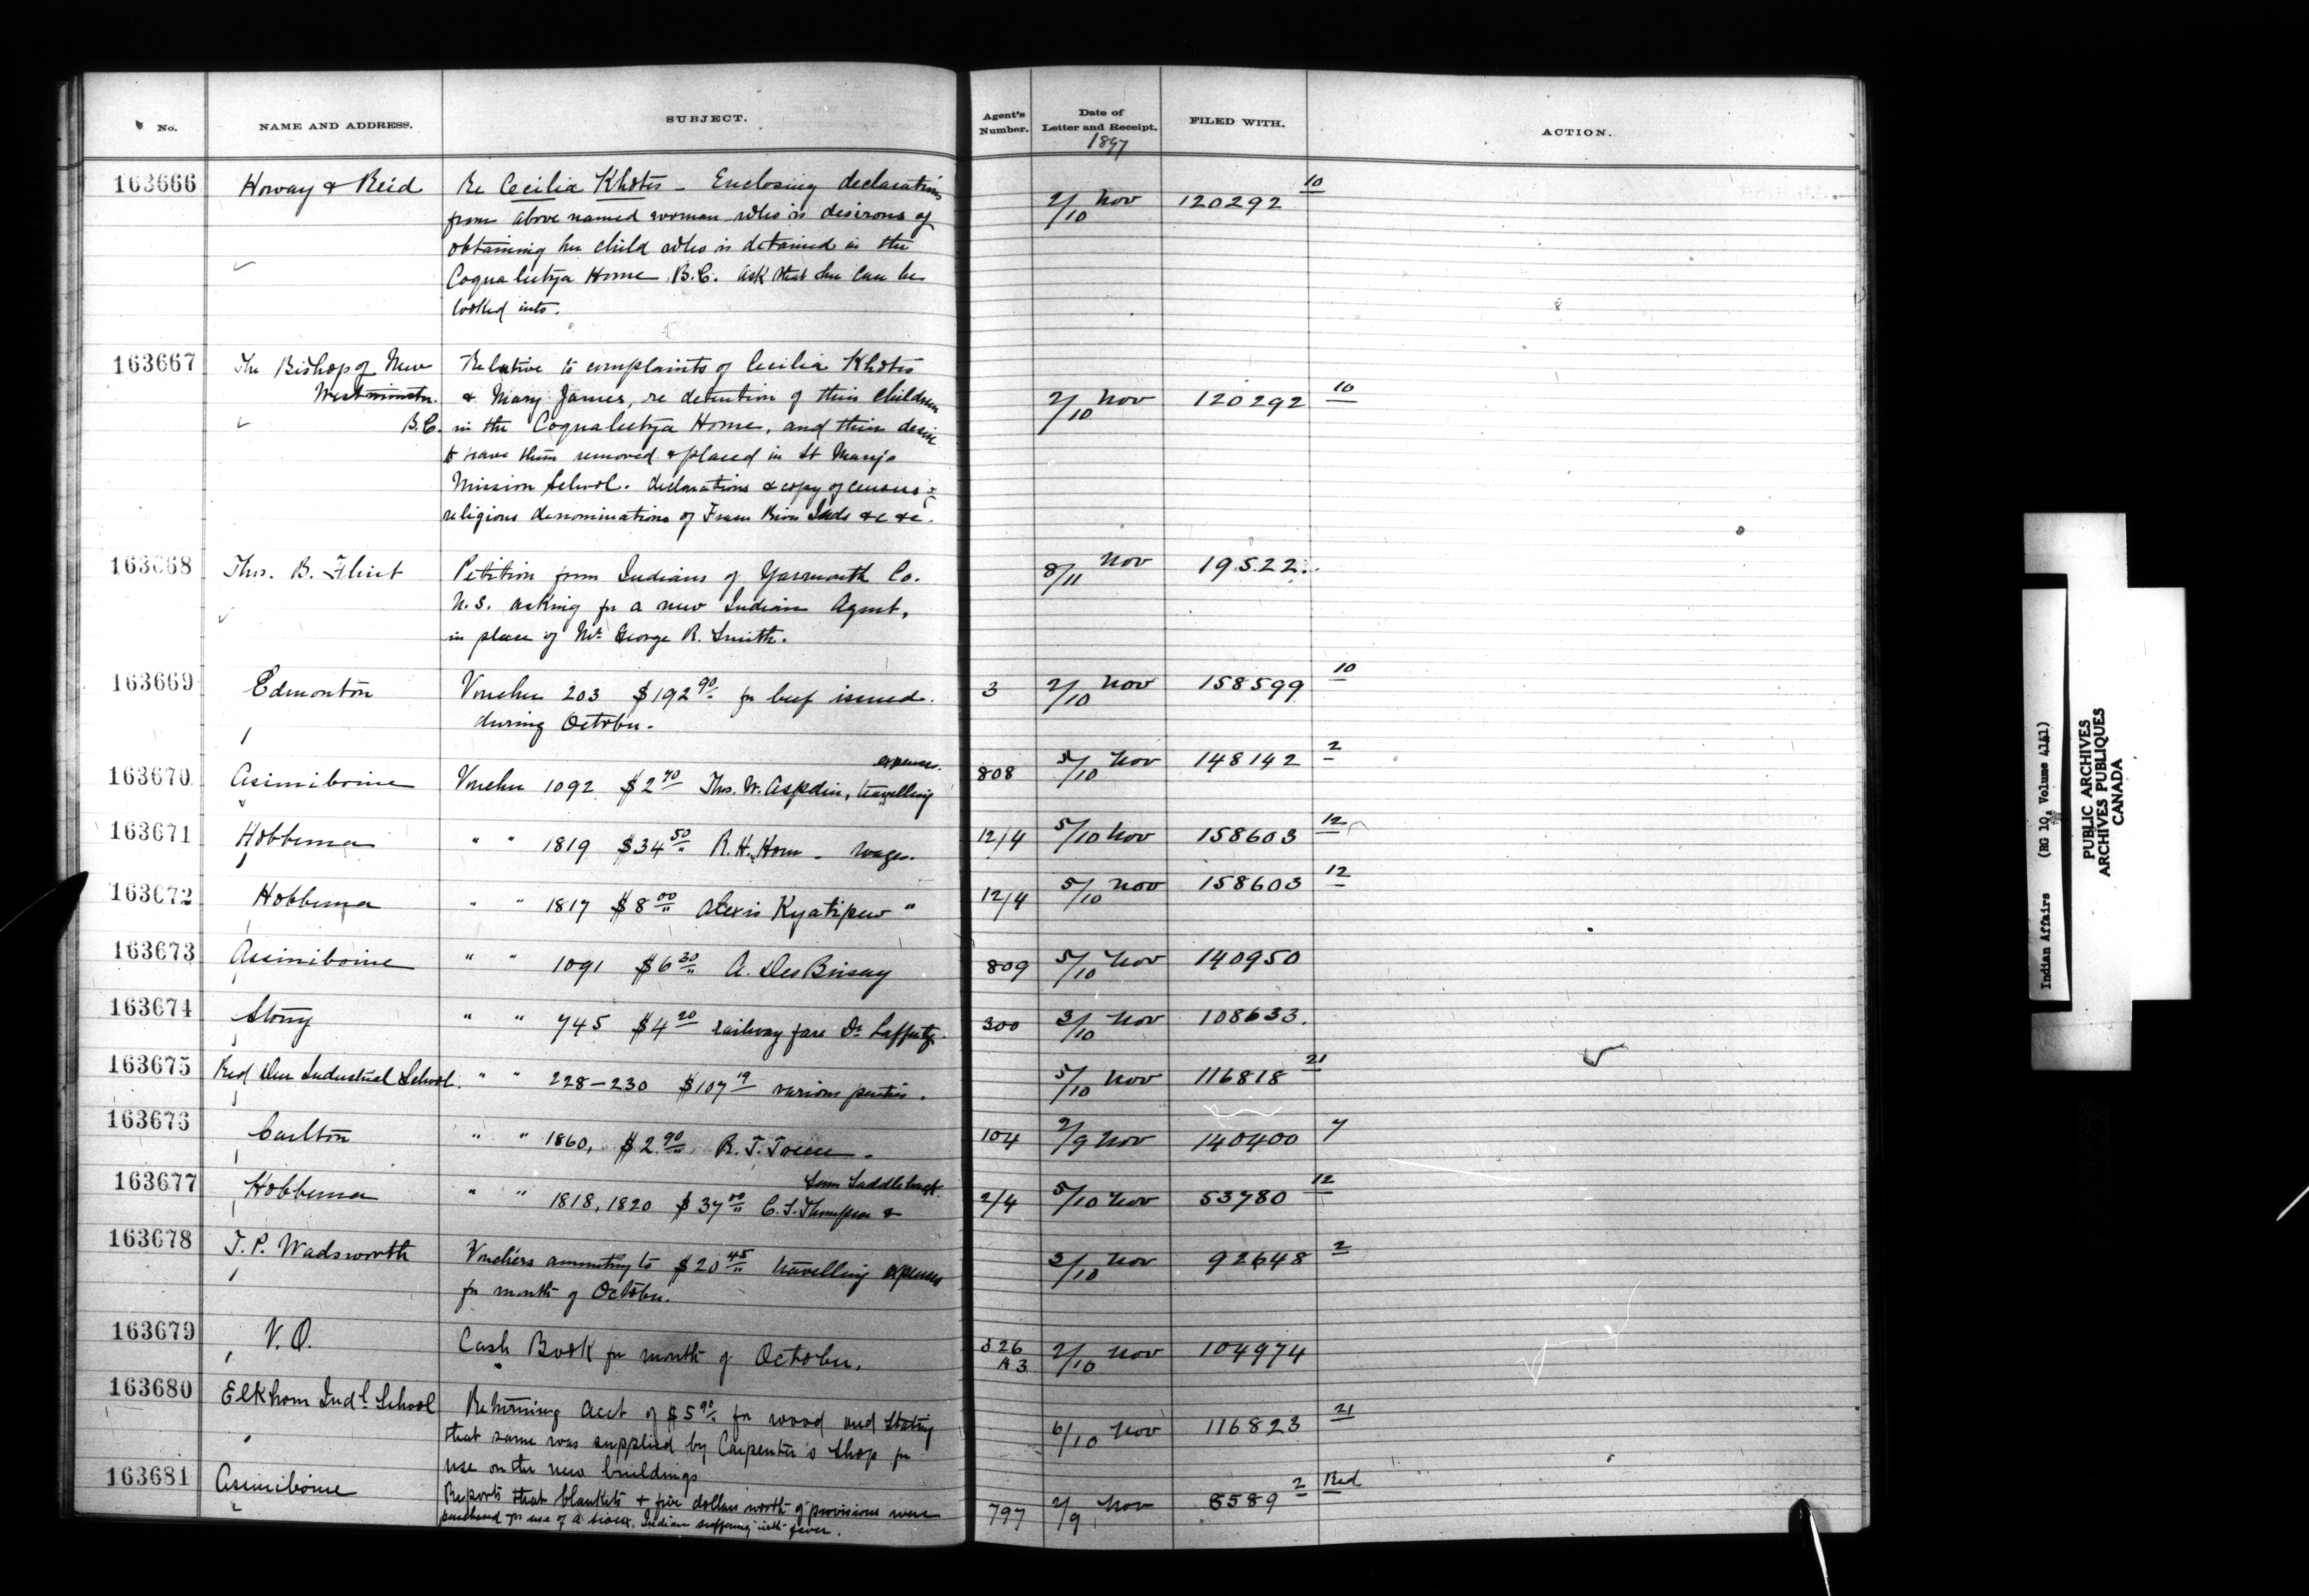 No. NAME AND ADDRESS. SUBJECT. Agent's Number. Date of Letter and Receipt. 1897 FILED WITH. ACTION.
163666 Howay & Reid Re Cecilia Khotis - Enclosing declarations 2/10 Nov 120292 10
from above named woman who is desirous of
obtaining her child who is detained in the
Coqualeetza Home B.C. ask that she can be
looked into.
163667 The Bishop of New Relative to complaints of Cecilia Khotis
Westminster. & Mary James, re detention of their children 2/10 Nov 120292 10
B.C. in the Coqualeetza Home, and their desire
to have them removed & placed in St Mary's
Mission School. declarations & copy of census &
religious denominations of Fraser River Inds &c &c.
163668 Thos. B. Flint Petition from Indians of Yarmouth Co. 8/11 Nov 19522.
N.S. asking for a new Indian Agent,
in place of Mr. George R. Smith.
163669 Edmonton Voucher 203 $192 90 for beef issued 3 2/10 Nov 158599 10
during October.
163670 Assiniboine Voucher 1092 $2 70 Thos. W. Aspdin, travelling expenses. 808 5/10 Nov 148142 2
163671 Hobbema " " 1819 $34 50 R. H. Horn - wages. 12/4 5/10 Nov 158603 12
163672 Hobbema " " 1817 $8 00 Alexis Kyatipew " 12/4 5/10 Nov 158603 12
163673 Assiniboine " " 1091 $6 30 A. DesBrisay 809 5/10 Nov 140950
163674 Stony " " 745 $4 20 railway fare Dr. Lafferty. 300 3/10 Nov 108633.
163675 Red Deer Industrial School. " " 228-230 $107 19 various parties. 5/10 Nov 116818 21
163676 Carlton " " 1860, $2 90 R. J. 104 2/9 Nov 140400 7
163677 Hobbema " " 1818, 1820 $37 00 C. S. Thompson & Saddleback. 2/4 5/10 Nov 53780 12
163678 T. P. Wadsworth Vouchers amounting to $20 45 travelling expenses 3/10 Nov 92648 2
for month of October.
163679 V. O. Cash Book for month of October. 326 A3 2/10 Nov 104974
163680 Elkhorn Indl. School Returning acct of $5 90 for wood and stating 6/10 Nov 116823 21
that same was supplied by Carpenter's Shop for
use on the new buildings
163681 Assiniboine Reports that blankets & five dollars worth of provisions were 797 2/9 Nov 8589 2 Red
purchased for use of a Sioux Indian suffering with fever.
Indian Affairs (RG 10, Volume 4141)
PUBLIC ARCHIVES
ARCHIVES PUBLIQUES
CANADA